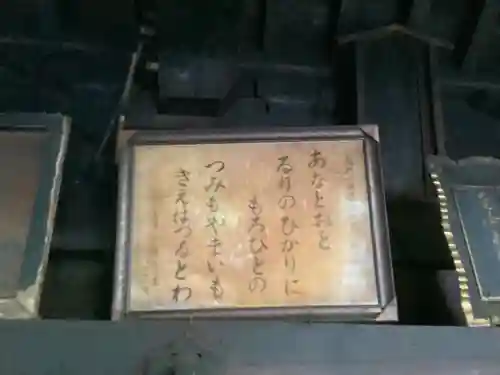 あなとおと
るりのひかりに
もろひとの
つみもやまいも
きえはつるとわ